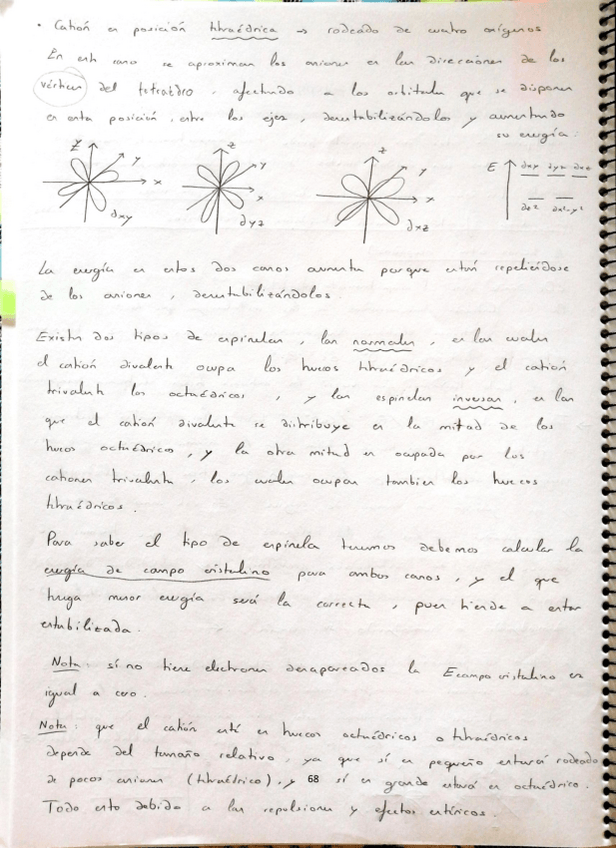 · Catión en posición tetraédrica → rodeado de cuatro oxígenos
En este caso se aproximan los aniones en las direcciones de los
vértices del tetraedro, afectando a los orbitales que se disponen
en esta posición, entre los ejes, desestabilizándolos y aumentando
su energía:
z y x dxy
z y x dyz
z y x dxz
E dxy dyz dxz
dz² dx²-y²
La energía en estos dos casos aumenta porque están repeliéndose
de los aniones, desestabilizándolos.
Existen dos tipos de espinelas, las normales, en las cuales
el catión divalente ocupa los huecos tetraédricos y el catión
trivalente los octaédricos, y las espinelas inversas, en las
que el catión divalente se distribuye en la mitad de los
huecos octaédricos, y la otra mitad es ocupada por los
cationes trivalente, los cuales ocupan tambien los huecos
tetraédricos.
Para saber el tipo de espinela tenemos debemos calcular la
energía de campo cristalino para ambos casos, y el que
tenga menor energía será la correcta, pues tiende a estar
estabilizada.
Nota: sí no tiene electrones desapareados la Ecampo cristalino es
igual a cero.
Nota: que el catión esté en huecos octaédricos o tetraédricos
depende del tamaño relativo, ya que sí es pequeño estará rodeado
de pocos aniones (tetraédrico), y 68 sí es grande estará en octaédrico.
Todo esto debido a las repulsiones y efectos estéricos.